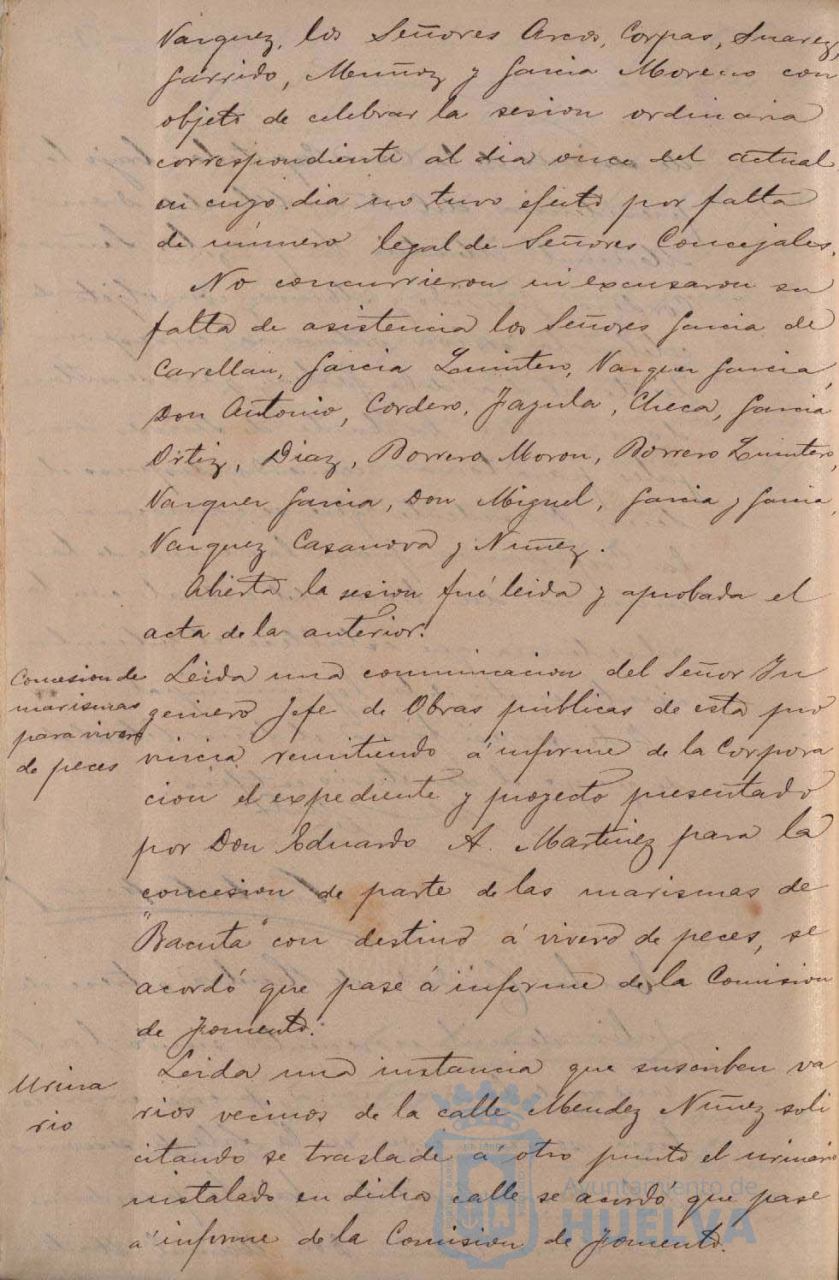 Vazquez, los Señores Arcos, Corpas, Suarez,
Garrido, Muñoz y Garcia Moreno con
objeto de celebrar la sesion ordinaria
correspondiente al dia once del actual
en cuyo dia no tuvo efecto por falta
de número legal de Señores Concejales.
No concurrieron ni excusaron su
falta de asistencia los Señores Garcia de
Garcia Quintero, Vazquez Garcia,
Don Antonio, Cordero, Jazula, Checa, Garcia
Ortiz, Diaz, Borrero Moron, Borrero Quintero,
Vazquez Garcia, Don Miguel, Garcia y Garcia,
Vazquez Casanova y Nuñez.
Abierta la sesion fué leida y aprobada el
acta de la anterior.
Concesion de
marismas
para vivero
de peces
Leida una comunicacion del Señor In
geniero Jefe de Obras públicas de esta pro
vincia remitiendo á informe de la Corpora
cion el expediente y proyecto presentado
por Don Eduardo A. Martinez para la
concesion de parte de las marismas de
"Bacuta" con destino á vivero de peces, se
acordó que pase á informe de la Comision
de Fomento.
Urina
rio
Leida una instancia que suscriben va
rios vecinos de la calle Mendez Nuñez soli
citando se traslade á otro punto el urinario
instalado en dicha calle se acordó que pase
á informe de la Comision de Fomento.
Ayuntamiento de
HUELVA